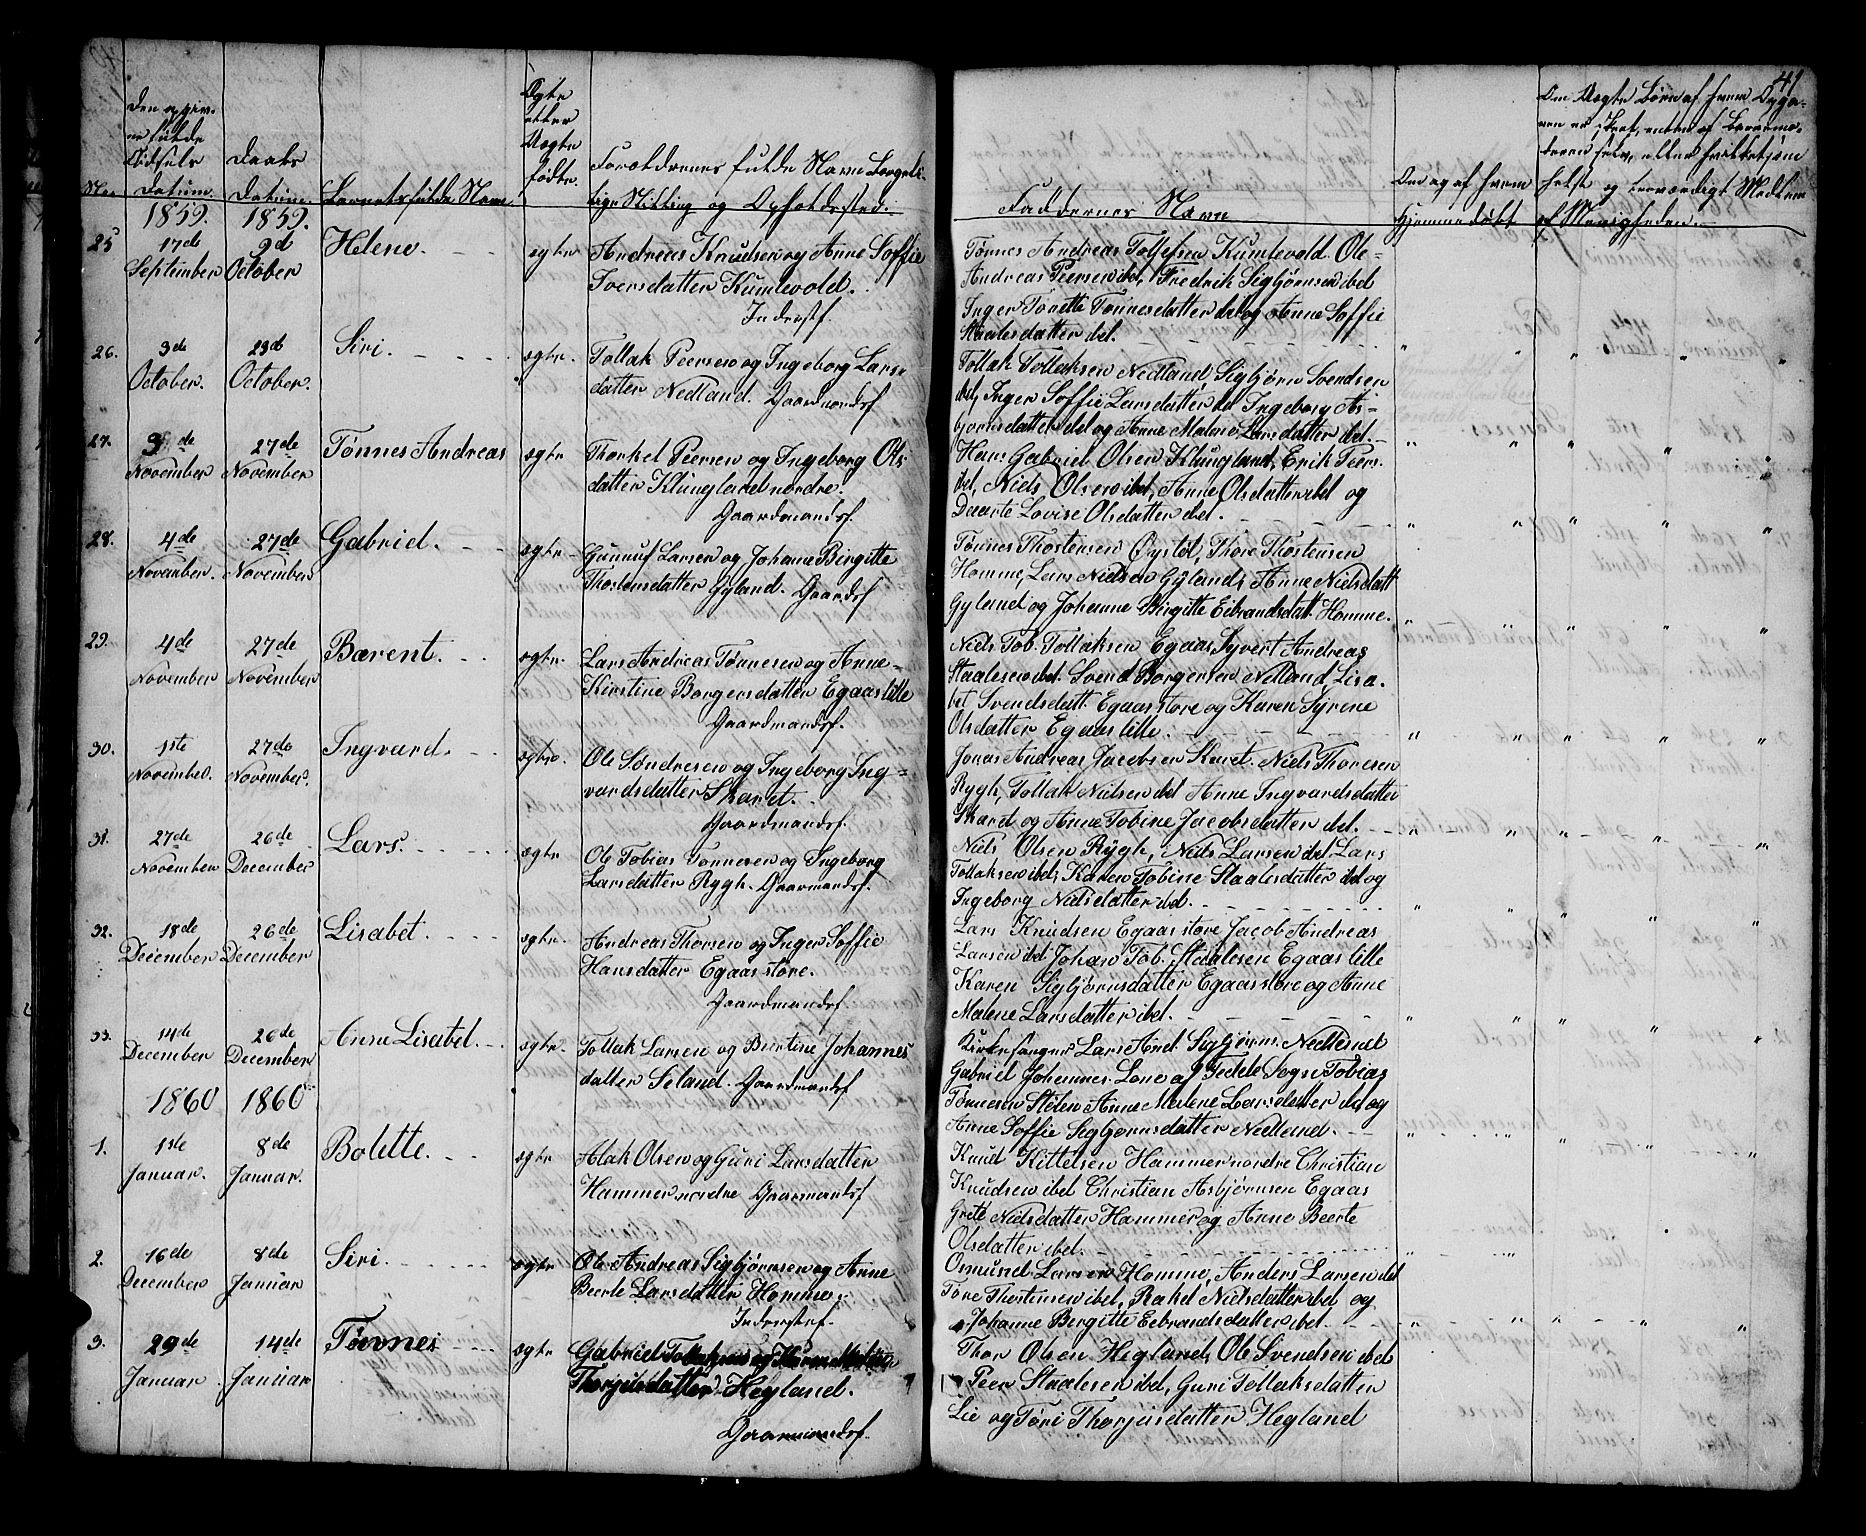 41
Den opgiv-
ne fulde
Fødsels
Datum.
Daabs
Datum.
Barnets fulde Navn.
Ægte
eller
Uægte
fødte.
Forældrenes fulde Navn Borger-
lige Stilling og Opholdssted.
Faddernes Navn
Om og af hvem
Hjemmedøbt
Om Uægte Børn af hvem Opga-
ven er skeet, enten af Barnemo-
deren selv, eller hvilketsom
helst og troværdigt Medlem
af Menigheden.
1859. 1859.
25 17de September 9d October Helene. ægte Andreas Knudsen og Anne Soffie
Iversdatter Kumlevold.
Inderstf.
Tønnes Andreas Tollefsen Kumlevold. Ole
Andreas Peersen ibd, Fredrik Sigbjørnsen ibd
Inger Tonette Tønnesdatter ibd og Anne Soffie
Staalesdatter ibd.
26. 3de October. 23d October. Siri. ægte. Tollak Peersen og Ingeborg Lars-
datter Nedland. Gaardmandsf
Tollak Tollaksen Nedland, Sigbjørn Svendsen
ibd, Inger Soffie Larsdatter ibd Ingeborg As-
bjørnsdatter ibd og Anne Malene Larsdatter ibd.
27. 3de November 27de November. Tønnes Andreas ægte Thorkel Peersen og Ingeborg Ols-
datter Klungland nordre.
Gaardmandsf.
Hans Gabriel Olsen Klungland, Erik Peers.
ibd, Niels Olsen ibd, Anne Olsdatter ibd og
Daarte Lovise Olsdatter ibd.
28. 4de November. 27de November. Gabriel. ægte Gunnuf Larsen og Johanne Birgitte
Thostensdatter Gyland. Gaardsf
Tønnes Thostensen Øysted, Thore Thostensen
Homme, Lars Nielsen Gyland, Anne Nielsdatt
Gyland og Johanne Birgitte Eibrandsdatt. Homme.
29. 4de November 27de November Barent. ægte. Lars Andreas Tønnesen og Anne
Kirstine Borgersdatter Egaas lille
Gaardmandsf.
Niels Tob. Tollaksen Egaas, Syvert Andreas
Staalesen ibd. Svend Borgersen Nedland, Lisa-
bet Svendsdatt. Egaas store og Karen Syrene
Olsdatter Egaas lille.
30. 1ste November. 27de November. Ingvard. ægte. Ole Søndresen og Ingeborg Ing-
vardsdatter Skaret.
Gaardmandsf.
Jonas Andreas Jacobsen Skaret. Niels Thoresen
Rygh, Tollak Nielsen ibd Anne Ingvardsdatter
Skard og Anne Tobine Jacobsdatter ibd.
31. 27de November 26de December Lars. ægte Ole Tobias Tønnesen og Ingeborg
Larsdatter Rygh. Gaarmandsf.
Niels Olsen Rygh, Niels Larsen ibd Lars
Tollaksen ibd, Karen Tobine Staalesdatter ibd og
Ingeborg Nielsdatter ibd.
32. 18de December 26de December Lisabet. ægte. Andreas Thorsen og Inger Soffie
Hansdatter Egaas store.
Gaardmandsf.
Lars Knudsen Egaas store Jacob Andreas
Larsen ibd Johan Tob. Staalesen Egaas lille
Karen Sigbjørnsdatter Egaas store og Anne
Malene Larsdatter ibd.
33. 14de December 26de December Anne Lisabet. ægte. Tollak Larsen og Bertine Johannes
datter Seland. Gaardmandsf
Kirkesanger Lars And. Sigbjørns. Nedland
Gabriel Johannes. Lone af Fedde Sogn Tobias
Tønnesen Stølen Anne Malene Larsdatter ibd og
Anne Soffie Sigbjørnsdatter Nedland.
1860 1860
1. 1ste Januar. 8de Januar. Bolette. ægte Aslak Olsen og Guri Larsdatter
Hammer nordre Gaarmandsf
Knud Kittelsen Hammer nordre Christian
Knudsen ibd Christian Asbjørnsen Egaas
Grete Nielsdatter Hammer og Anne Beerte
Olsdatter ibd.
2. 16de December 8de Januar Siri. ægte Ole Andreas Sigbjørnsen og Anne
Beerte Larsdatter Homme.
Inderstef.
Osmund Larsen Homme, Anders Larsen ibd
Tore Thostensen ibd, Rakel Nielsdatter ibd og
Johanne Bergitte Eebrandsdatter ibd.
3. 29de Januar 14de Januar Tønnes ægte Gabriel Tollaksen og Karen Malene
Thorjeisdatter Hegland.
Gaarmandsf.
Thor Olsen Hegland, Ole Svendsen ibd
Peer Staalesen ibd, Guri Tollaksdatter
Lie og Tori Thorjeisdatter Hegland